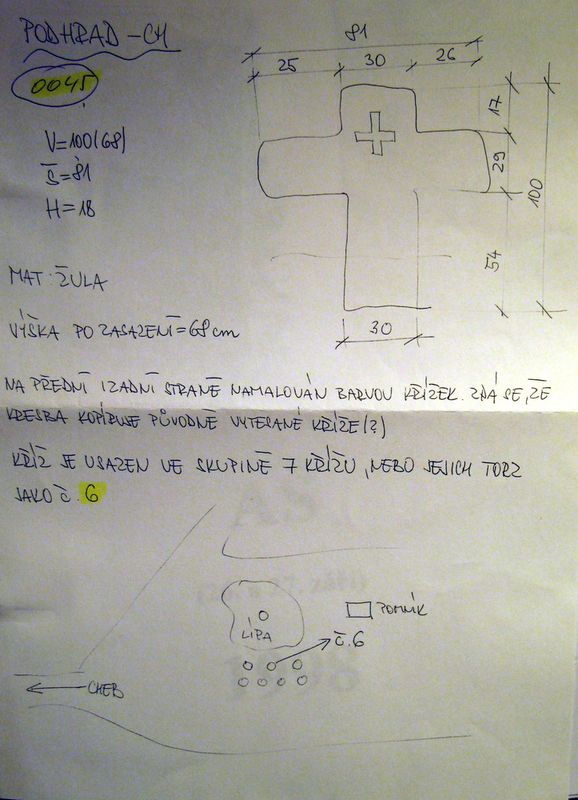 PODHRAD - CH
0045
V=100(68)
Š=81
H=18
MAT. ŽULA
VÝŠKA PO ZASAZENÍ=68cm
81
25 30 26
17
29
54
100
30
NA PŘEDNÍ I ZADNÍ STRANĚ NAMALOVÁN BARVOU KŘÍŽEK. ZDÁ SE, ŽE
KRESBA KOPÍRUJE PŮVODNĚ VYTESANÉ KŘÍŽE(?)
KŘÍŽ JE USAZEN VE SKUPINĚ 7 KŘÍŽŮ, NEBO JEJICH TORZ
JAKO Č. 6
LÍPA
POMNÍK
Č.6
CHEB